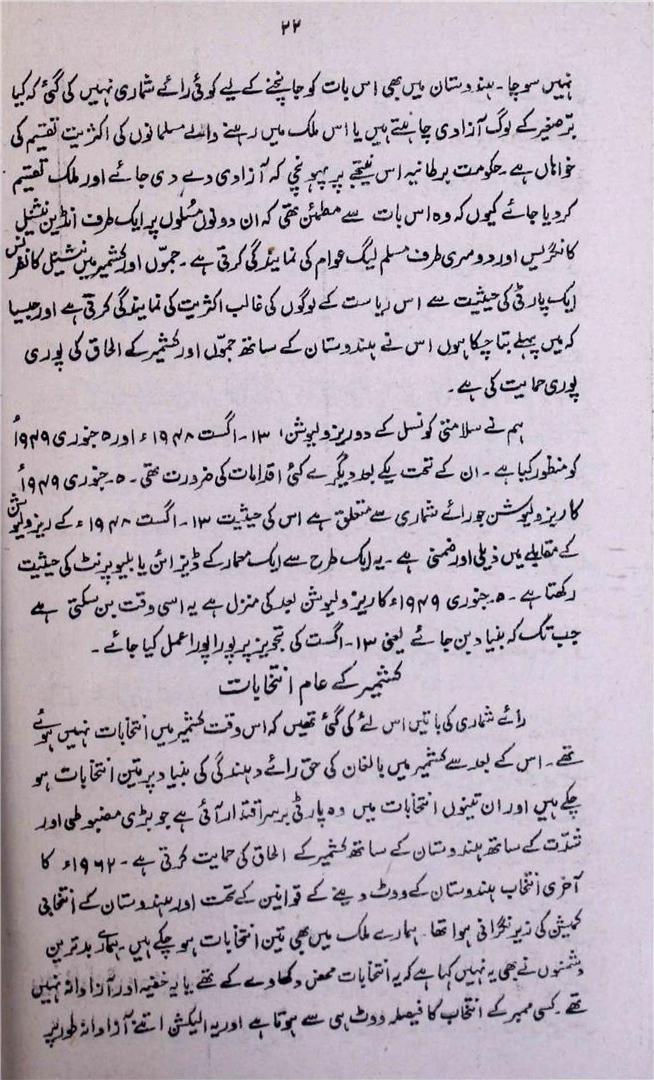 ۲۲
نہیں سوچا۔ ہندوستان میں بھی اس بات کو جانچنے کے لیے کوئی رائے شماری نہیں کی گئی کہ کیا
برّصغیر کے لوگ آزادی چاہتے ہیں یا اس ملک میں رہنے والے مسلمانوں کی اکثریت تقسیم کی
خواہاں ہے۔ حکومت برطانیہ اس نتیجے پر پہونچی کہ آزادی دے دی جائے اور ملک تقسیم
کر دیا جائے کیوں کہ وہ اس بات سے مطمئن تھی کہ ان دونوں مسئلوں پر ایک طرف انڈین نیشنل
کانگریس اور دوسری طرف مسلم لیگ عوام کی نمایندگی کرتی ہے۔ جموّں اور کشمیر میں نیشنل کانفرنس
ایک پارٹی کی حیثیت سے اس ریاست کے لوگوں کی غالب اکثریت کی نمایندگی کرتی ہے اور جیسا
کہ میں پہلے بتا چکا ہوں اس نے ہندوستان کے ساتھ جموّں اور کشمیر کے الحاق کی پوری
پوری حمایت کی ہے۔
ہم نے سلامتی کونسل کے دو ریزولیوشن، ۱۳۔ اگست ۱۹۴۸ء اور ۵ جنوری ۱۹۴۹ء
کو منظور کیا ہے۔ ان کے تحت یکے بعد دیگرے کئی اقدامات کی ضرورت تھی۔ ۵۔ جنوری ۱۹۴۹ء
کا ریزولیوشن جو رائے شماری سے متعلق ہے اس کی حیثیت ۱۳۔ اگست ۱۹۴۸ء کے ریزولیوشن
کے مقابلے میں ذیلی اور ضمنی ہے۔ یہ ایک طرح سے ایک معمار کے ڈیزائن یا بلیو پرنٹ کی حیثیت
رکھتا ہے۔ ۵۔ جنوری ۱۹۴۹ء کا ریزولیوشن بعد کی منزل ہے یہ اسی وقت بن سکتی ہے
جب تک کہ بنیاد بن جائے یعنی ۱۳۔ اگست کی تجویز پر پورا پورا عمل کیا جائے۔
کشمیر کے عام انتخابات
رائے شماری کی باتیں اس لئے کی گئی تھیں کہ اس وقت کشمیر میں انتخابات نہیں ہوئے
تھے۔ اس کے بعد سے کشمیر میں بالغان کی حق رائے دہندگی کی بنیاد پر تین انتخابات ہو
چکے ہیں اور ان تینوں انتخابات میں وہ پارٹی برسر اقتدار آئی ہے جو بڑی مضبوطی اور
شدّت کے ساتھ ہندوستان کے ساتھ کشمیر کے الحاق کی حمایت کرتی ہے۔ ۱۹۶۲ء کا
آخری انتخاب ہندوستان کے ووٹ دینے کے قوانین کے تحت اور ہندوستان کے انتخابی
کمیشن کی زیر نگرانی ہوا تھا۔ ہمارے ملک میں بھی تین انتخابات ہو چکے ہیں۔ ہمارے بدترین
دشمنوں نے بھی یہ نہیں کہا ہے کہ یہ انتخابات محض دکھاوے کے تھے یا یہ خفیہ اور آزادانہ نہیں
تھے۔ کسی ممبر کے انتخاب کا فیصلہ ووٹ ہی سے ہوتا ہے اور یہ الیکشن اتنے آزادانہ طور پر